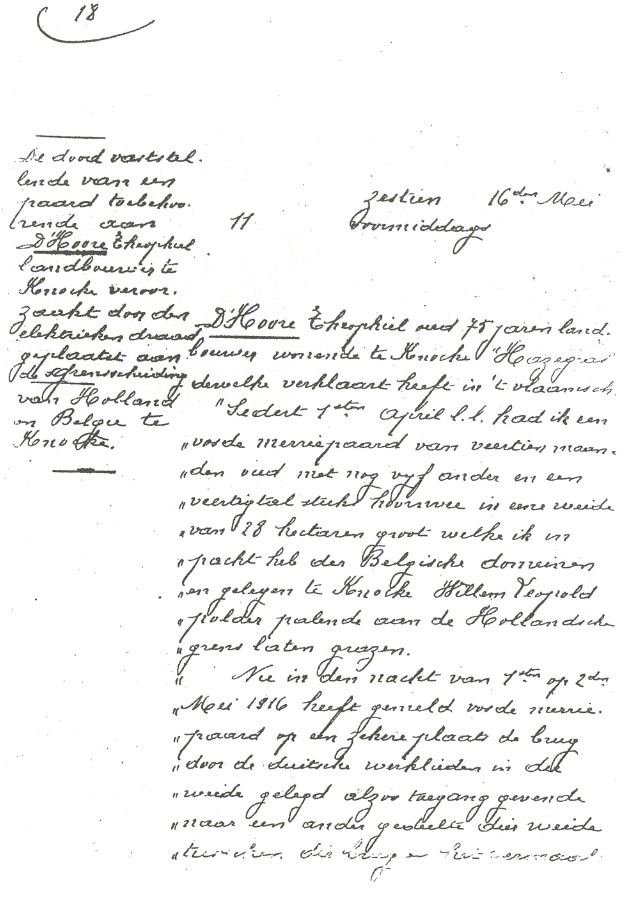 18
De dood vaststel.
lende van een
paard toebehoo.
rende aan
D'Hoore Theophiel
landbouwer te
Knocke veroor.
zaakt door den
elektrieken draad
geplaatst aan
de grensscheiding
van Holland
en Belgie te
Knocke.
zestien 16den Mei
11 voormiddags
D'Hoore Theophiel oud 75 jaren land.
bouwer wonende te Knocke "Hazegras
dewelke verklaart heeft in 't vlaamsch.
"Sedert 1sten april l.l. had ik een
"vosde merriepaard van veertien maan=
"den oud met nog vyf ander en een
"veertigtal stuks hoornvee in eene weide
"van 28 hectaren groot welke ik in
"pacht heb der Belgische domeinen
"en gelegen te Knocke Willem Leopold
"polder palende aan de Hollandsche
"grens laten grazen.
" Nu in den nacht van 1sten op 2den
"Mei 1916 heeft gemeld vosde merrie.
"paard op een zekere plaats de brug
"door de duitsche werklieden in die
"weide gelegd alzoo toegang gevende
"naar een ander gedeelte dier weide
" die brug en